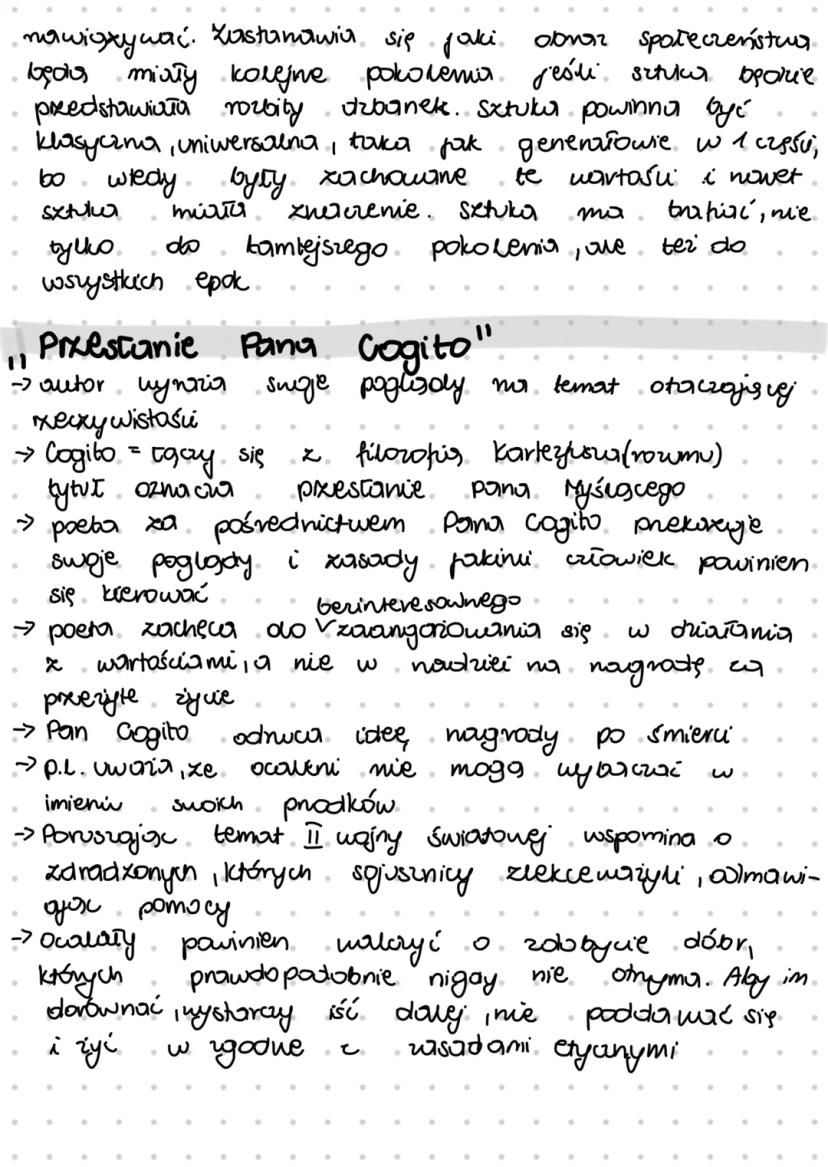 nawiązywać. Zastanawia się jaki obraz społeczeństwa
będą miały kolejne pokolenia jeśli sztuka będzie
przedstawiała rozbity dzbanek. Sztuka powinna być
klasyczna, uniwersalna, taka jak generałowie w 1 części,
bo wtedy były zachowane te wartości i nawet
sztuka miała znaczenie. Sztuka ma trafiać, nie
tylko do tamtejszego pokolenia, ale też do
wszystkich epok
"Przesłanie Pana Cogito"
→ autor wyraża swoje poglądy na temat otaczającej
rzeczywistości
→ Cogito = łączy się z filozofią Kartezjusza (rozumu)
tytuł oznacza przesłanie pana Myślącego
→ poeta za pośrednictwem Pana Cogito przekazuje
swoje poglądy i zasady jakimi człowiek powinien
się kierować
bezinteresownego
→ poeta zachęca do ∨ zaangażowania się w działania
z wartościami, a nie w nadziei na nagrodę za
przeżyte życie
→ Pan Cogito odrzuca ideę nagrody po śmierci
→ p.l. uważa, że ocaleni nie mogą wybaczać w
imieniu swoich przodków
→ Poruszając temat II wojny światowej wspomina o
zdradzonych, których sojusznicy zlekceważyli, odmawi-
ając pomocy
→ Ocalały powinien walczyć o zdobycie dóbr,
których prawdopodobnie nigdy nie otrzyma. Aby im
dorównać, wystarczy iść dalej, nie poddawać się
i żyć w zgodzie z zasadami etycznymi